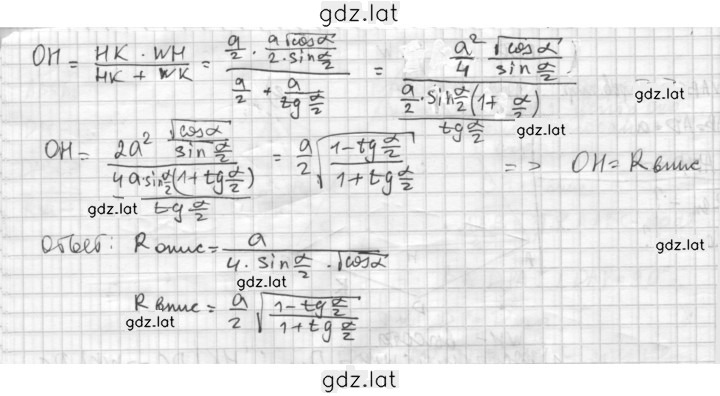 gdz.lat
OH = \frac{HK \cdot WH}{HK + WK} = \frac{\frac{a}{2} \cdot \frac{a\sqrt{\cos\alpha}}{2 \cdot \sin\frac{\alpha}{2}}}{\frac{a}{2} + \frac{a}{tg\frac{\alpha}{2}}} = \frac{\frac{a^2}{4} \frac{\sqrt{\cos\alpha}}{\sin\frac{\alpha}{2}}}{\frac{\frac{a}{2} \cdot \sin\frac{\alpha}{2}(1+ \frac{\alpha}{2})}{tg\frac{\alpha}{2}}} gdz.lat
gdz.lat
OH = \frac{2a^2 \frac{\sqrt{\cos\alpha}}{\sin\frac{\alpha}{2}}}{\frac{4a \cdot \sin\frac{\alpha}{2}(1+tg\frac{\alpha}{2})}{tg\frac{\alpha}{2}}} = \frac{a}{2}\sqrt{\frac{1-tg\frac{\alpha}{2}}{1+tg\frac{\alpha}{2}}} => OH = R впис
gdz.lat
Ответ: R опис = \frac{a}{4 \cdot \sin\frac{\alpha}{2} \cdot \sqrt{\cos\alpha}} gdz.lat
gdz.lat
R впис = \frac{a}{2}\sqrt{\frac{1-tg\frac{\alpha}{2}}{1+tg\frac{\alpha}{2}}}
gdz.lat
gdz.lat